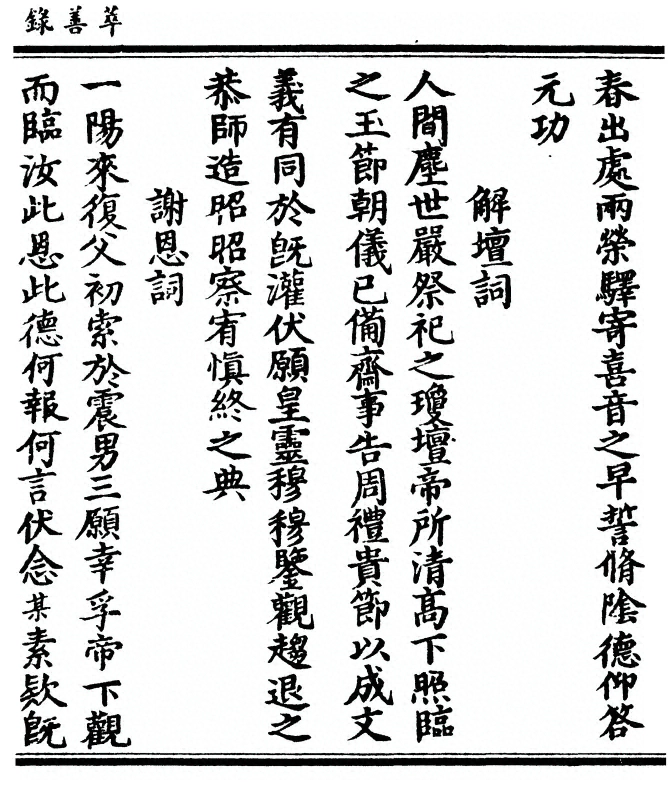 萃善錄
春出處兩榮驛寄喜音之早誓脩隂德仰答
元功
解壇詞
人間塵世嚴祭祀之瓊壇帝所清高下照臨
之玉節朝儀已備齋事告周禮貴節以成文
義有同於旣灌伏願皇靈穆穆鑒觀趨退之
恭師造昭昭察宥愼終之典
謝恩詞
一陽來復父初索於震男三願幸孚帝下觀
而臨汝此恩此德何報何言伏念某素欵旣